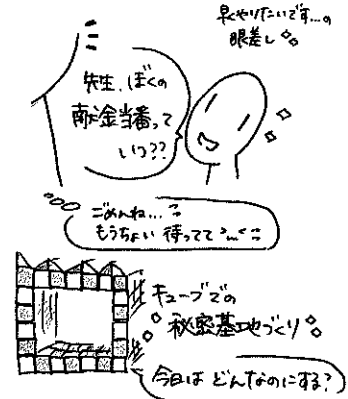 早くやりたいです…の
眼差し
先生、ぼくの
献金当番って
いつ??
ごめんね…
もうちょい 待ってて
キューブでの
秘密基地づくり
今日は どんなのにする?